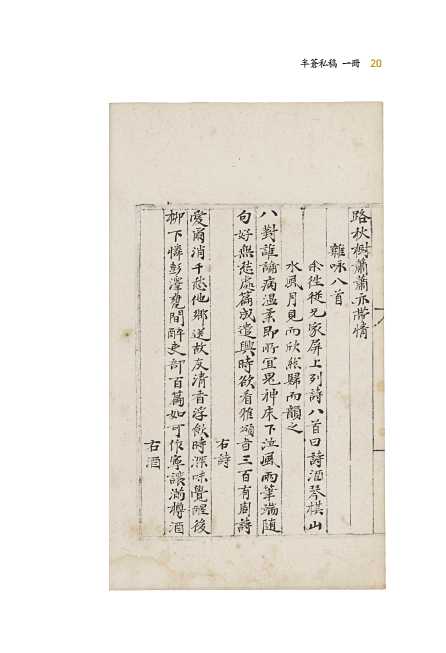 半蒼私稿 一冊 20
路秋樹蕭蕭亦惱情
雜咏八首
余徃從兄家屏上列詩八首曰詩酒琴棋山
水風月見而欣然歸而韻之
八對誰論病温柔即所宜鬼神床下泣風雨筆端隨
句好無愁處篇成遣興時欲看雅頌音三百有周詩
右詩
愛爾消千愁他鄉送故友清香浮飲時深味覺醒後
柳下憐彭澤甕間醉吏部百篇如可作寧讓滿樽酒
右酒